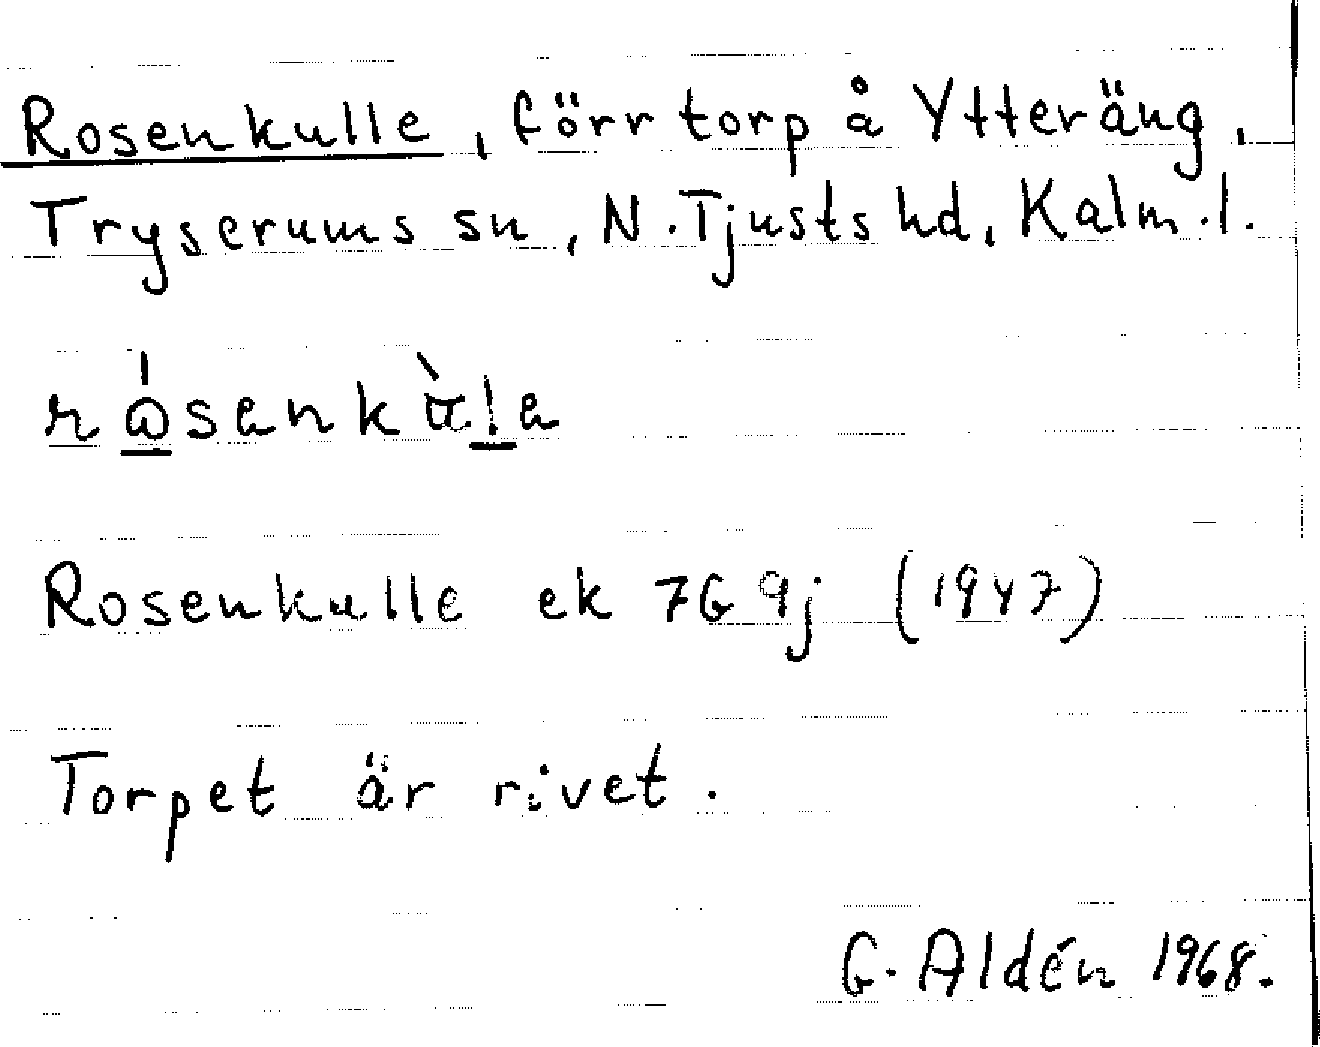 Rosenkulle, förr torp å Ytteräng,
Tryserums sn, N. Tjusts hd, Kalm. l.
Rosenkulle ek 7G 9j (1947)
Torpet är rivet.
G. Aldén 1968.